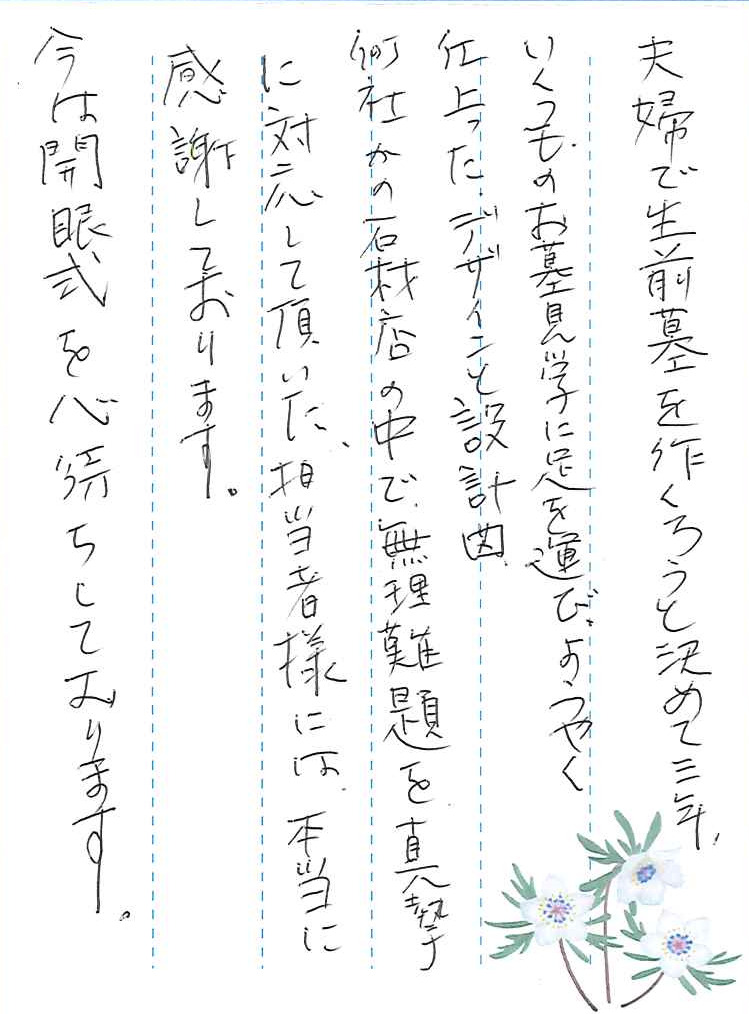 夫婦で生前墓を作くろうと決めて三年、
いくつものお墓見学に足を運び、ようやく
仕上った、デザインと設計図、
何社かの石材店の中で、無理難題を真摯
に対応して頂いた、担当者様には、本当に
感謝しております。
今は開眼式を心待ちしております。